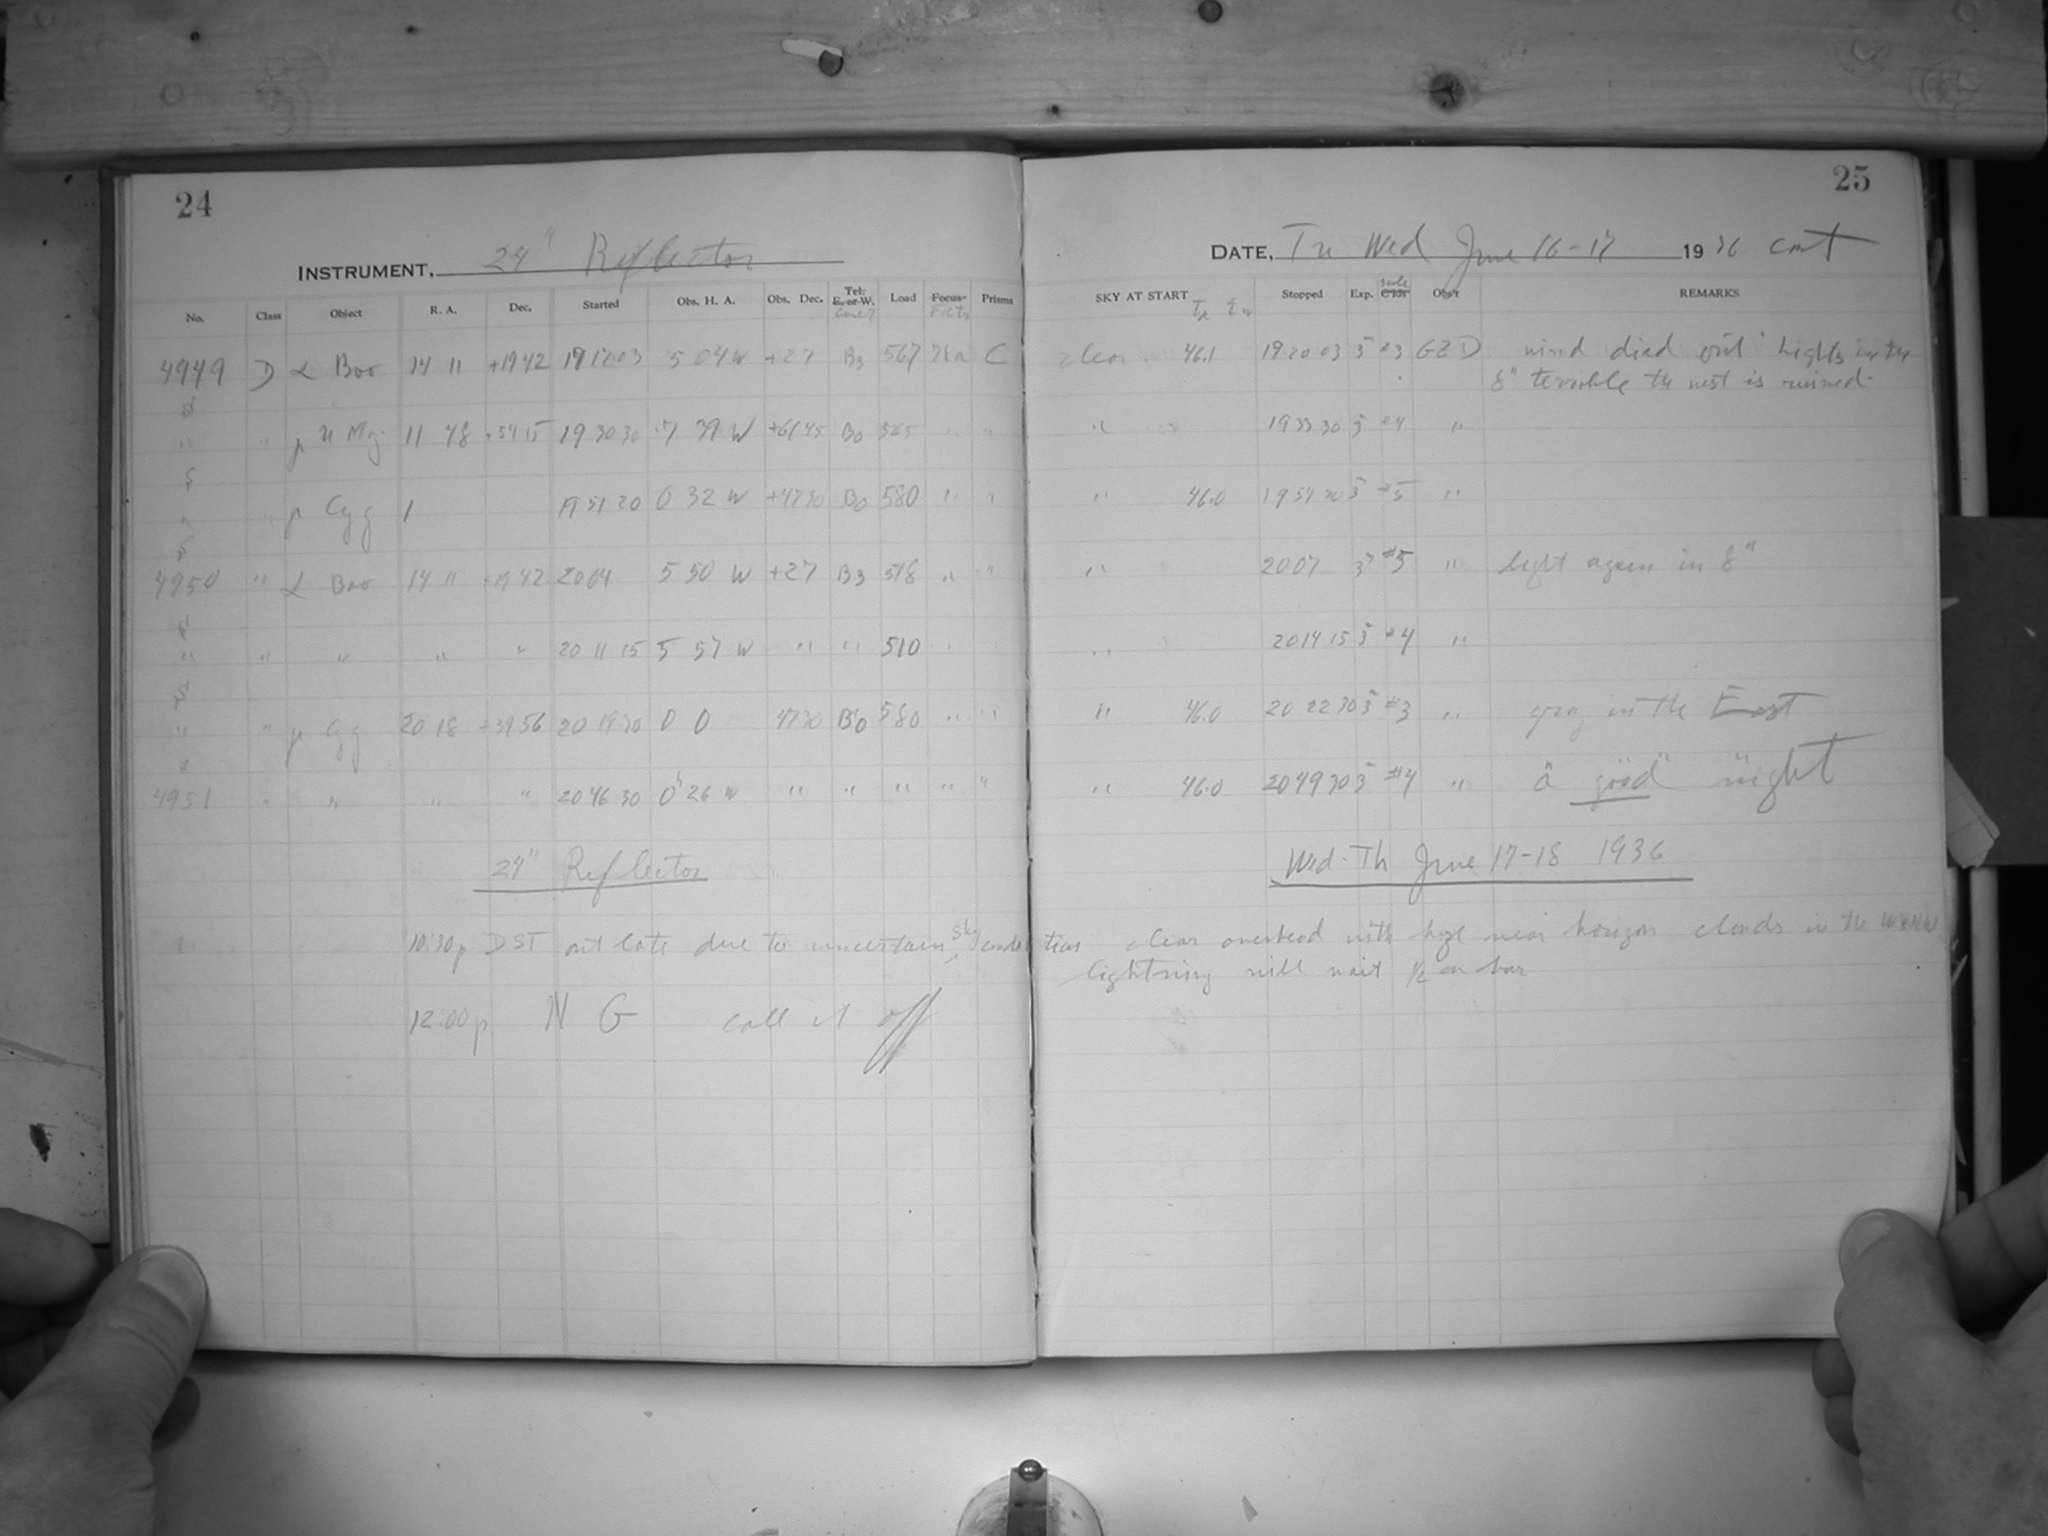 24
INSTRUMENT, 24" Reflector
No. Class Object R. A. Dec. Started Obs. H. A. Obs. Dec. Tel. E. or W. Cover Load Focus Prisms
4949 D α Boo 14 11 +19 42 19 17 03 5 04 W +27 B3 567 C
" " U Maj 11 48 +54 15 19 30 30 7 39 W +61 45 B0 565 " "
" " p Cyg 19 51 20 0 32 W +47 30 B0 580 " "
4950 " α Boo 14 11 +19 42 20 04 5 50 W +27 B3 518 " "
" " " " " 20 11 15 5 57 W " " 510
" " p Cyg 20 18 +39 56 20 19 30 0 0 47 30 B0 580 " "
4951 " " " " 20 46 30 0 26 W " " " " "
24" Reflector
10:30p DST out late due to uncertain sky condi
12:00p N G call it off
25
DATE, Tu Wed June 16-17 1936 cont
SKY AT START Stopped Exp. Clds Obs'r REMARKS
clear 46.1 19 20 03 3 #3 GZD wind died out lights in the
8" terrible the rest is ruined
" 19 33 30 3 #4 "
" 46.0 19 54 20 3 #5 "
" 20 07 3 #5 " light again in 8"
" 20 14 15 3 #4 "
" 46.0 20 22 30 3 #3 " gray in the East
" 46.0 20 49 30 3 #4 " a "good" night
Wed-Th June 17-18 1936
tions clear overhead with haze near horizon clouds in the W & NW
lightning will wait ½ an hour